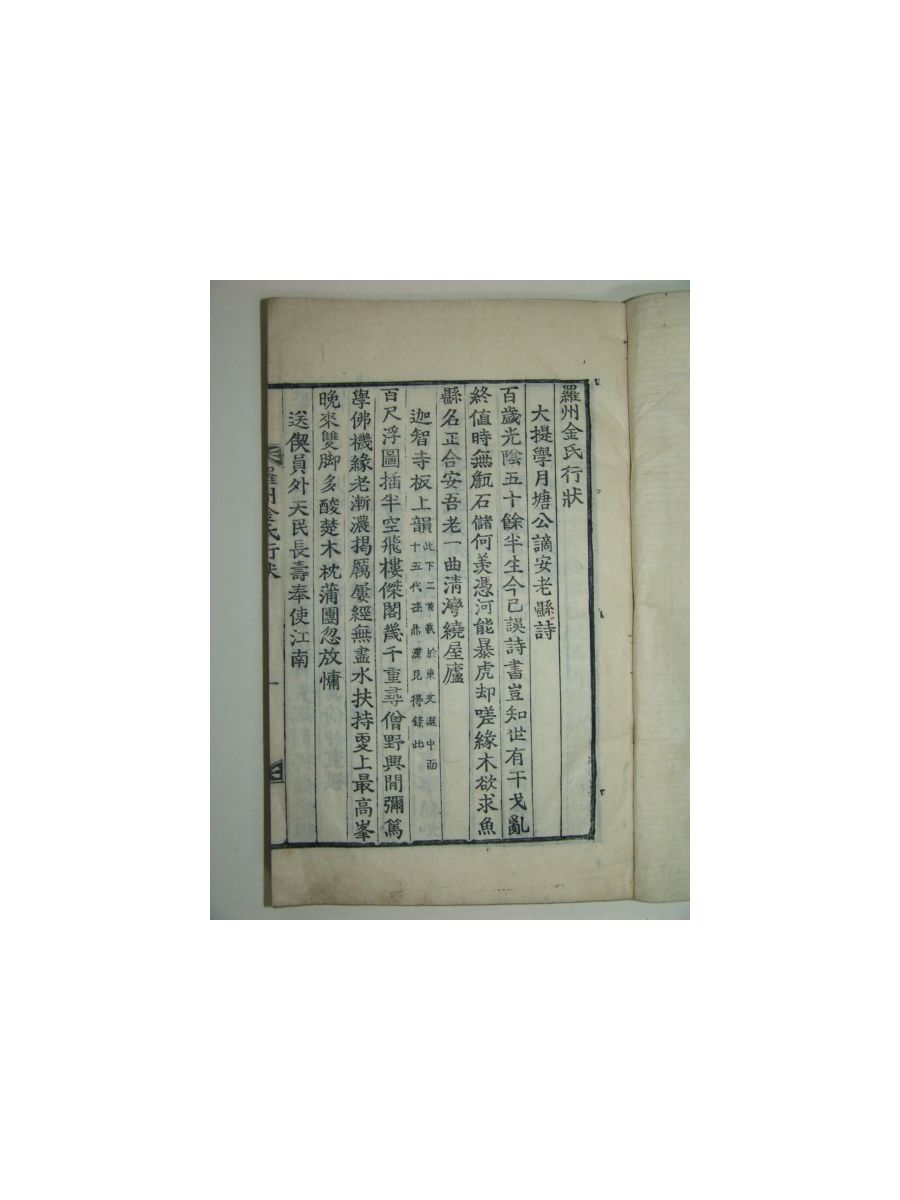 羅州金氏行狀
大提學月塘公謫安老縣詩
百歲光陰五十餘半生今已誤詩書豈知世有干戈亂
終值時無甔石儲何羨憑河能暴虎却嗟緣木欲求魚
縣名正合安吾老一曲淸灣繞屋廬
迦智寺板上韻此下二首載於東文選中而
十五代孫鼎漢見得錄此
百尺浮圖揷半空飛樓傑閣幾千重尋僧野興閒彌篤
學佛機緣老漸濃揭厲屢經無盡水扶持更上最高峯
晩來雙脚多酸楚木枕蒲團忽放慵
送偰員外天民長壽奉使江南
羅州金氏行狀
一